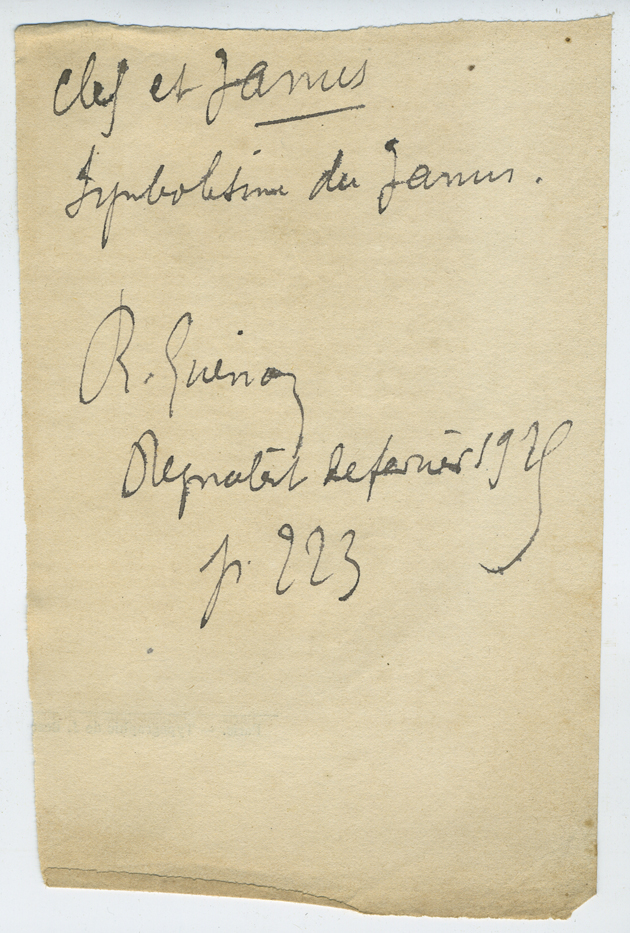 Clef et Janus
Symbolisme du Janus.
R. Guénon
Regnabit de février 1925
p. 223